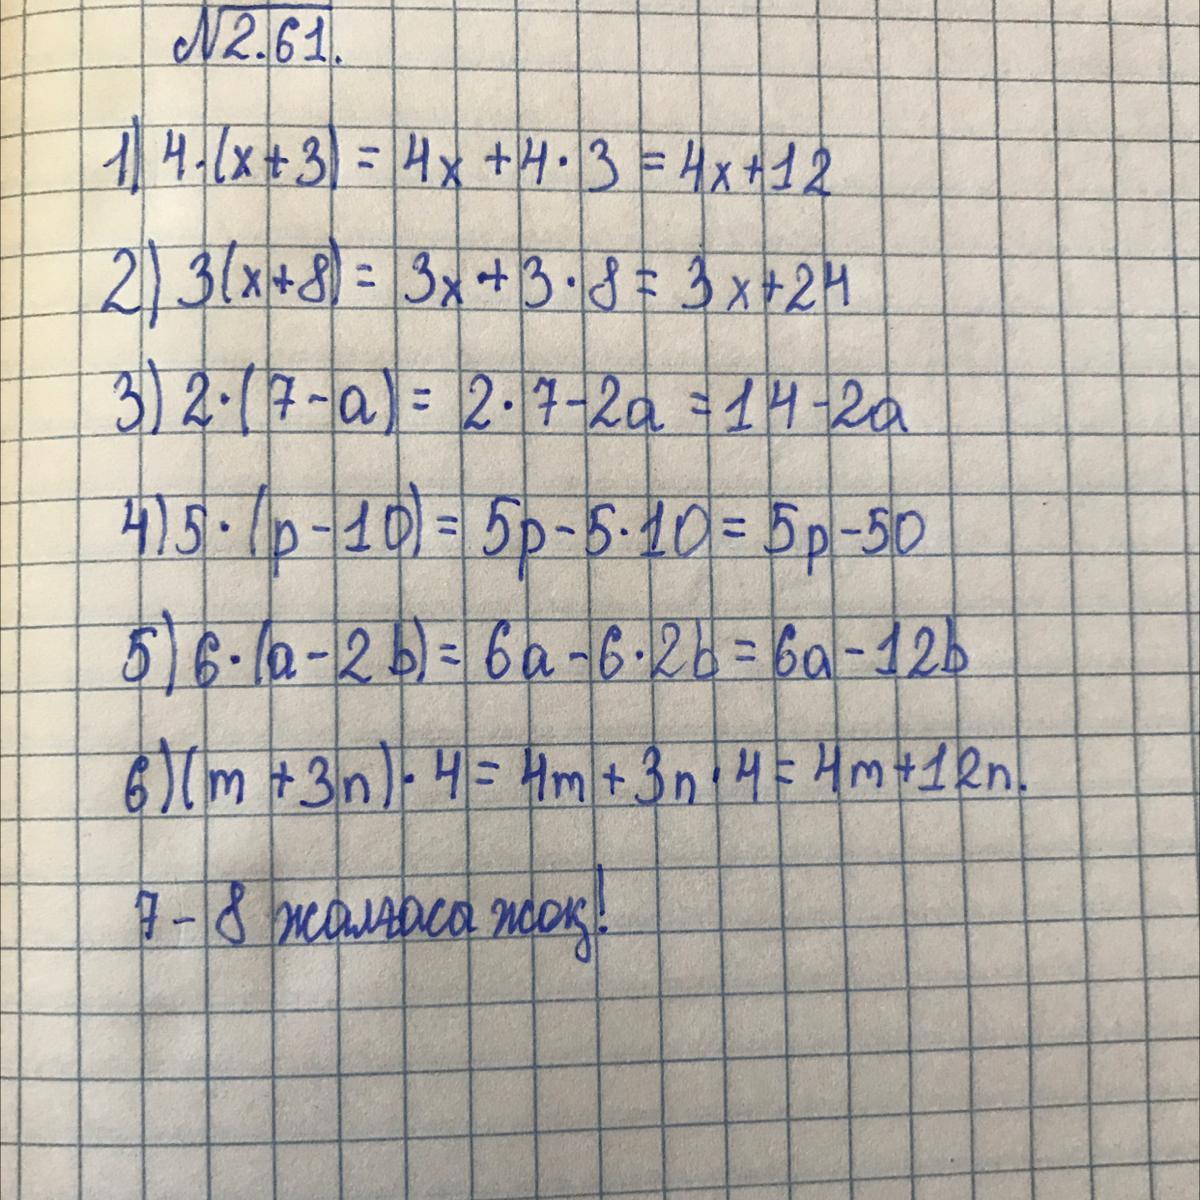 №2.61.
1) 4·(x+3) = 4x +4·3 = 4x+12
2) 3(x+8) = 3x+3·8 = 3x+24
3) 2·(7-a) = 2·7-2a = 14-2a
4) 5·(p-10) = 5p-5·10 = 5p-50
5) 6·(a-2b) = 6a-6·2b = 6a-12b
6) (m+3n)·4 = 4m+3n·4 = 4m+12n.
7-8 жалғаса жоқ!